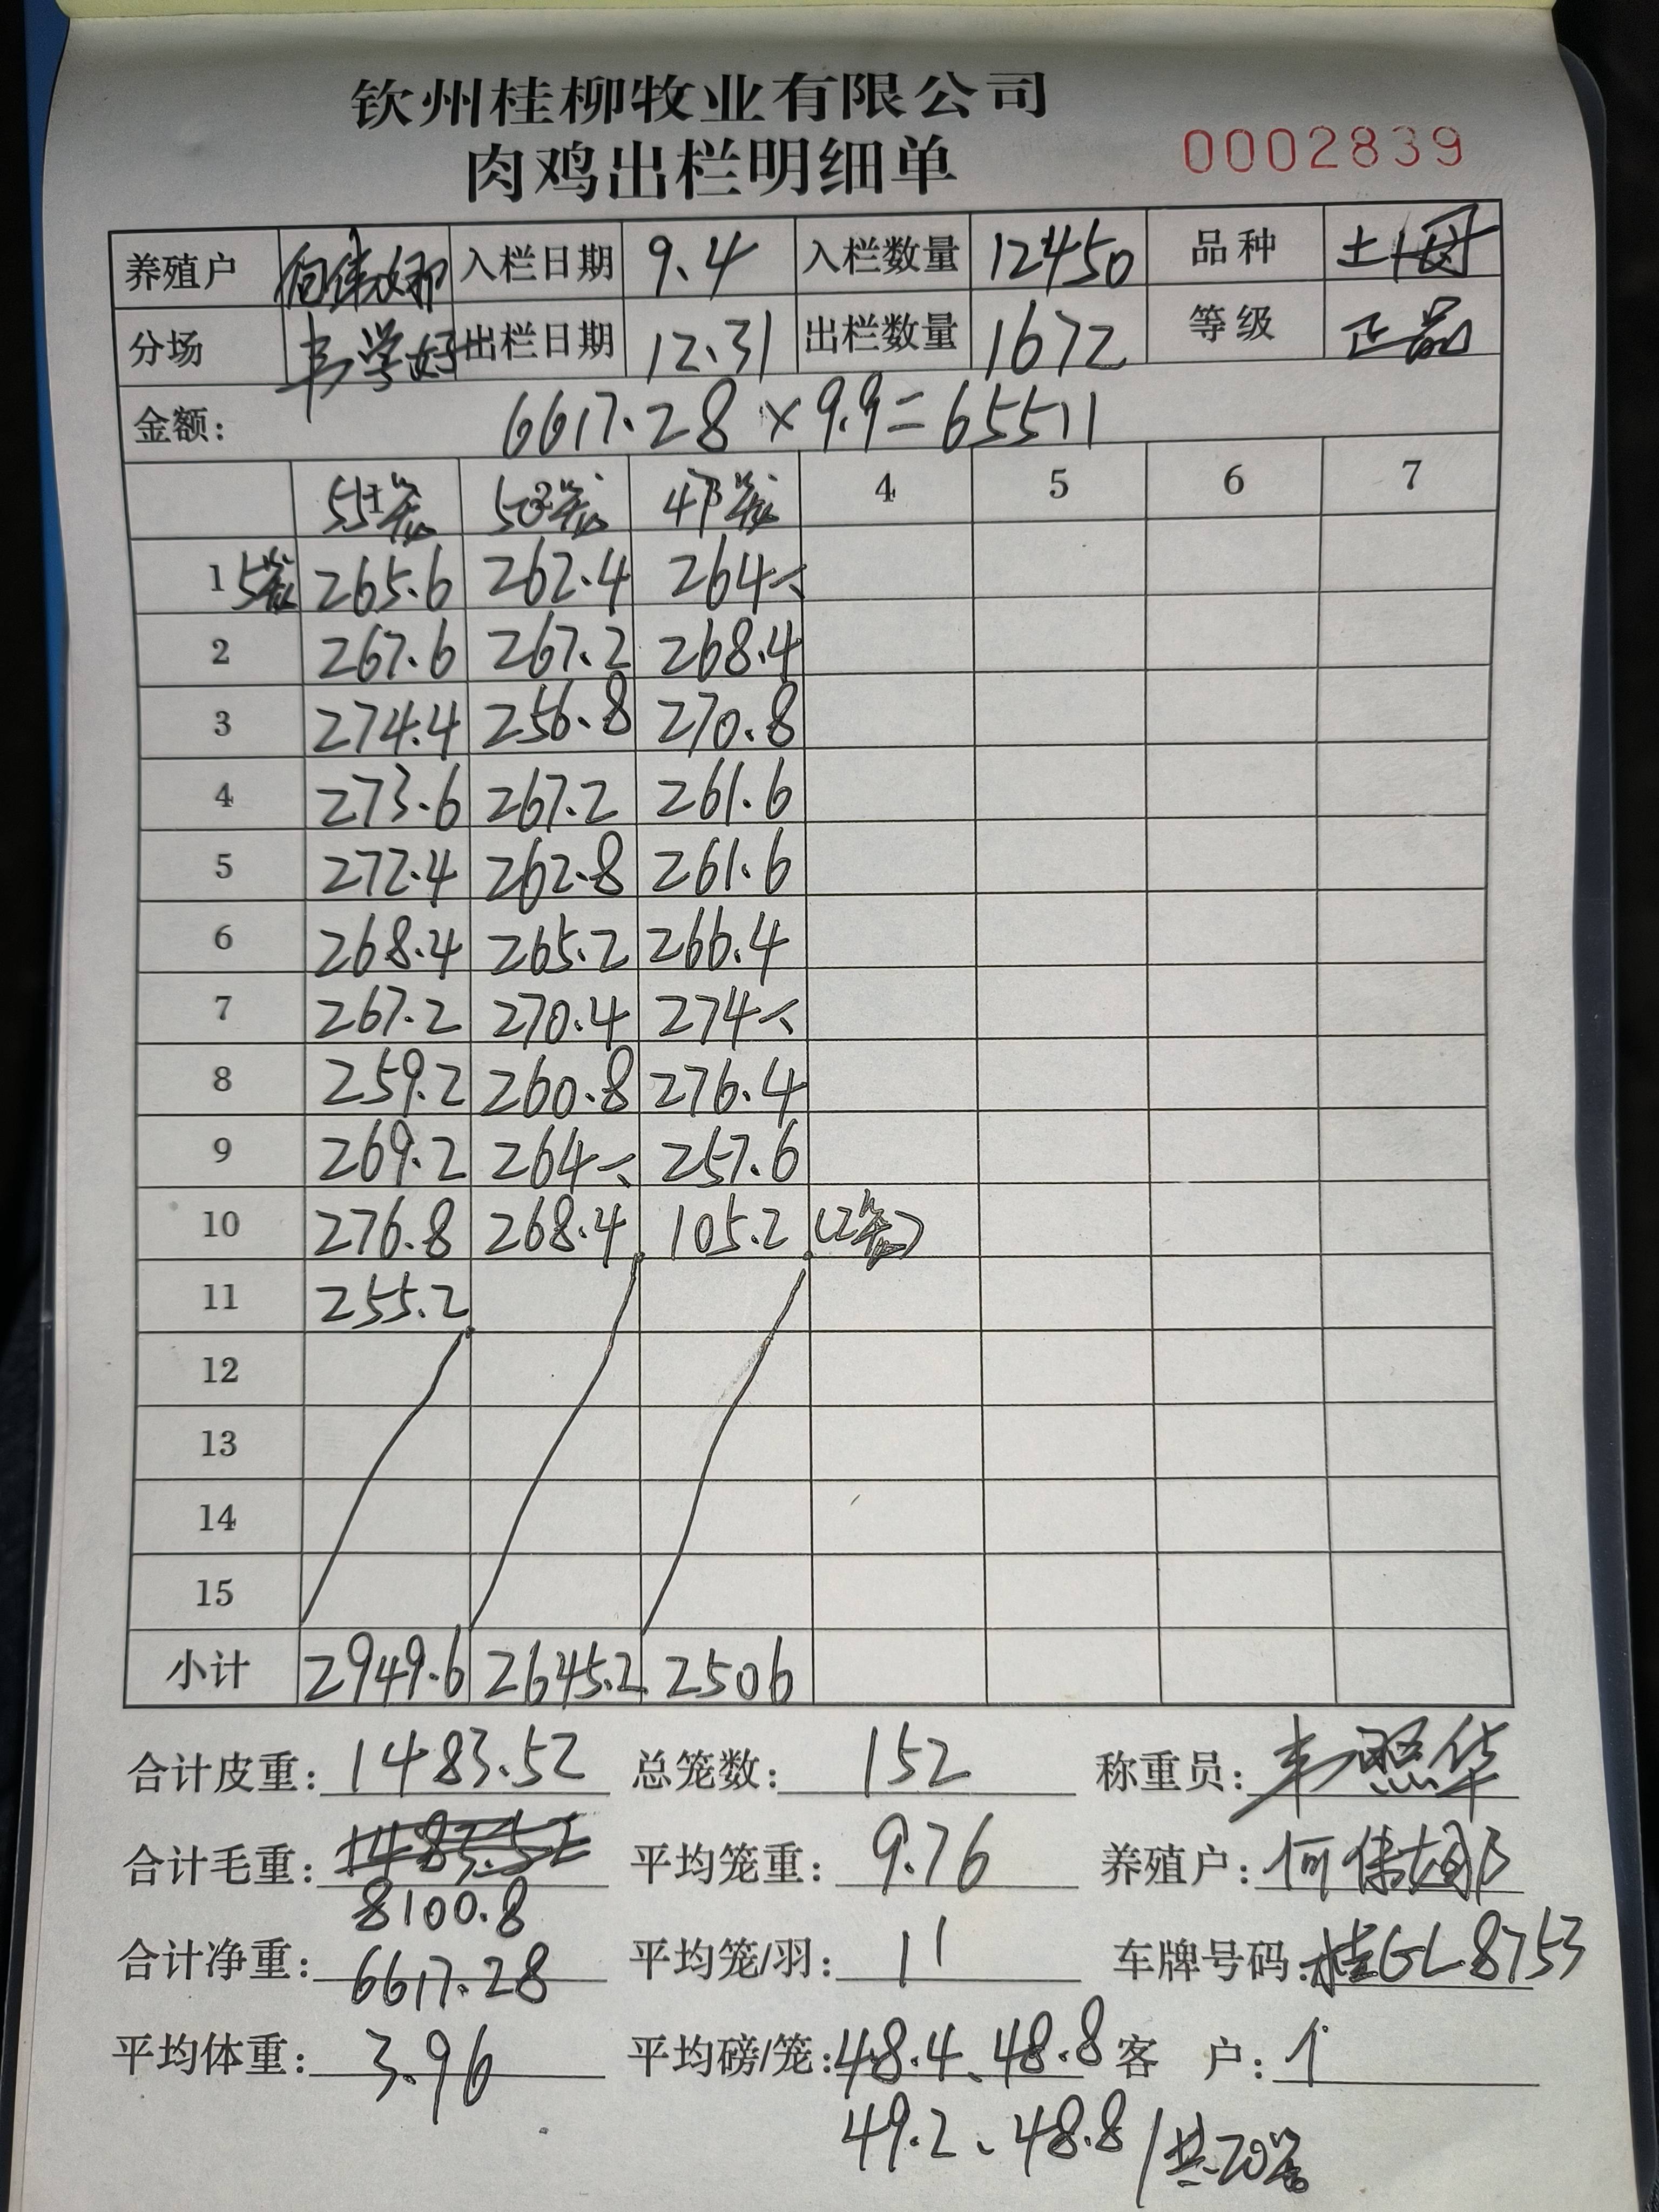 钦州桂柳牧业有限公司
肉鸡出栏明细单 0002839
养殖户 何伟娜 入栏日期 9.4 入栏数量 12450 品种 土1母
分场 韦学好 出栏日期 12.31 出栏数量 1672 等级 正品
金额: 6617.28×9.9=65511
55笼 50笼 47笼 4 5 6 7
1 5笼 265.6 262.4 264
2 267.6 267.2 268.4
3 274.4 256.8 270.8
4 273.6 267.2 261.6
5 272.4 262.8 261.6
6 268.4 265.2 266.4
7 267.2 270.4 274
8 259.2 260.8 276.4
9 269.2 264 257.6
10 276.8 268.4 105.2 (2笼)
11 255.2
12
13
14
15
小计 2949.6 2645.2 2506
合计皮重: 1483.52 总笼数: 152 称重员: 韦照华
合计毛重: 1483.52 平均笼重: 9.76 养殖户: 何伟娜
8100.8
合计净重: 6617.28 平均笼/羽: 11 车牌号码: 桂GL8753
平均体重: 3.96 平均磅/笼: 48.4、48.8 客 户:
49.2、48.8/共20笼